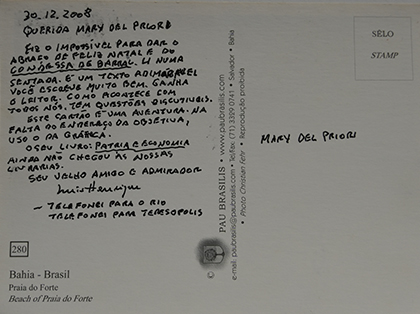 30.12.2008
QUERIDA MARY DEL PRIORI
FIZ O IMPOSSÍVEL PARA DAR O
ABRAÇO DE FELIZ NATAL E DO
CONDESSA DE BARRAL. LI NUMA
SENTADA. É UM TEXTO ADMIRÁVEL
VOCÊ ESCREVE MUITO BEM. GANHA
O LEITOR. COMO ACONTECE COM
TODOS NÓS. TEM QUESTÕES DISCUTÍVEIS.
ESTE CARTÃO É UMA AVENTURA. NA
FALTA DO ENDEREÇO DA OBJETIVA,
USO O DA GRÁFICA.
O SEU LIVRO: PATRIA E ECONOMIA
AINDA NÃO CHEGOU ÀS NOSSAS
LIVRARIAS.
SEU VELHO AMIGO E ADMIRADOR
Luis Henrique
- TELEFONEI PARA O RIO
TELEFONEI PARA TERESOPOLIS
280
Bahia - Brasil
Praia do Forte
Beach of Praia do Forte
PAU BRASILIS • www.paubrasilis.com
e-mail: paubrasilis@paubrasilis.com • Telfax: (71) 3329 0741 • Salvador • Bahia
• Photo Christian Fehr • Reprodução proibida
©
SÊLO
STAMP
MARY DEL PRIORI